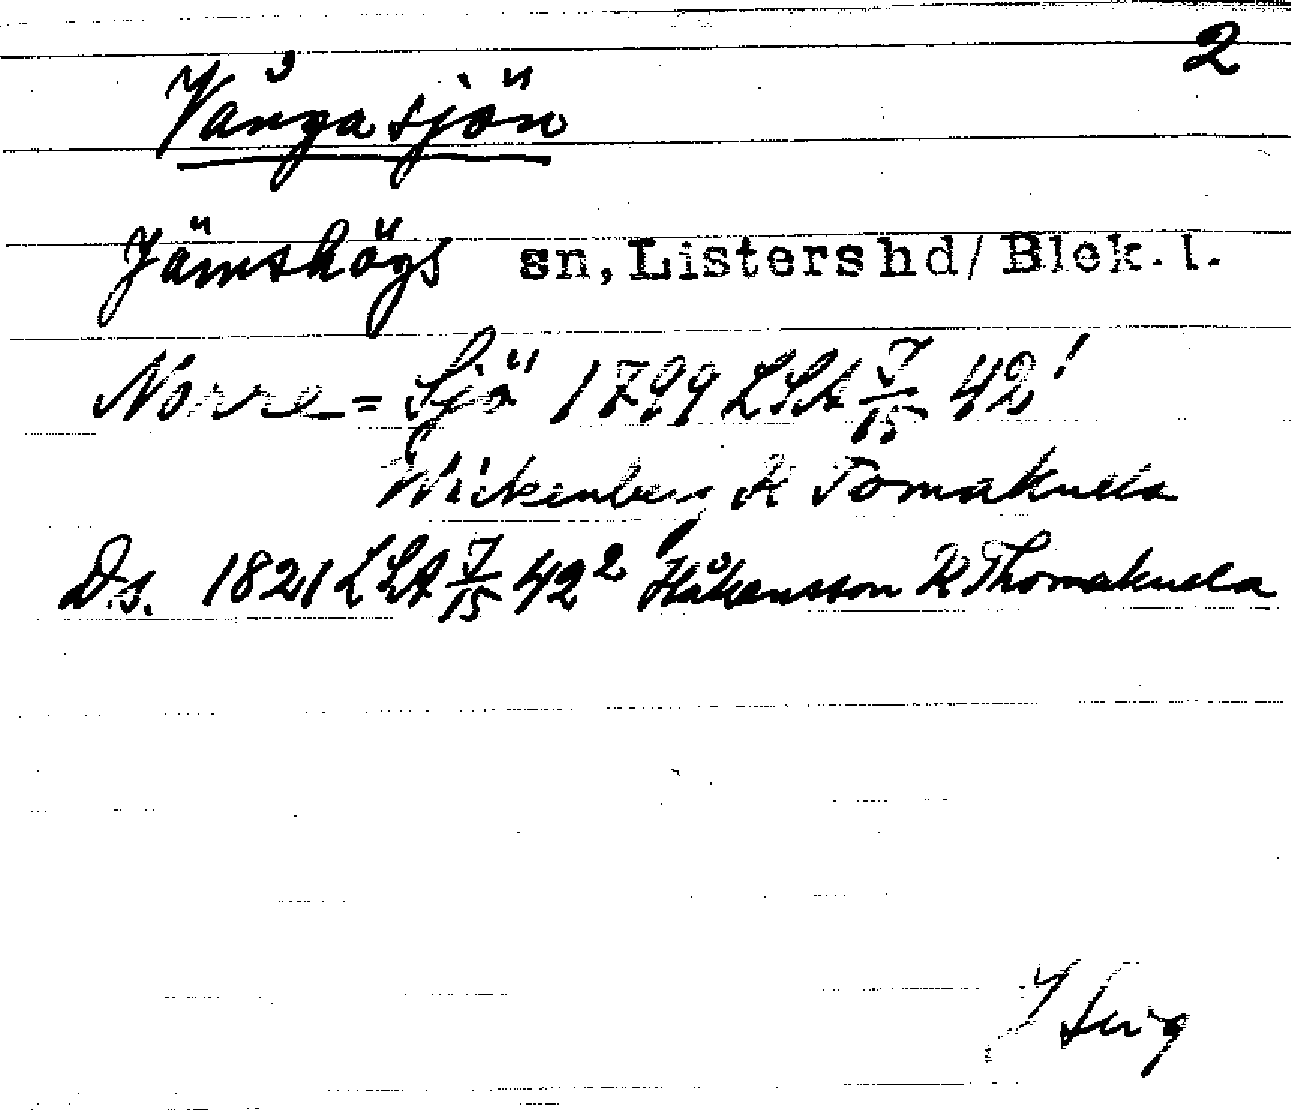 2
Vångasjön
Jämshögs sn, Listers hd/ Blek. l.
Norre = Sjö 1799 LSA J/15 42¹
Wickenberg K Tomakulla
Ds. 1821 LSA J/15 42² Håkansson K Thomakulla